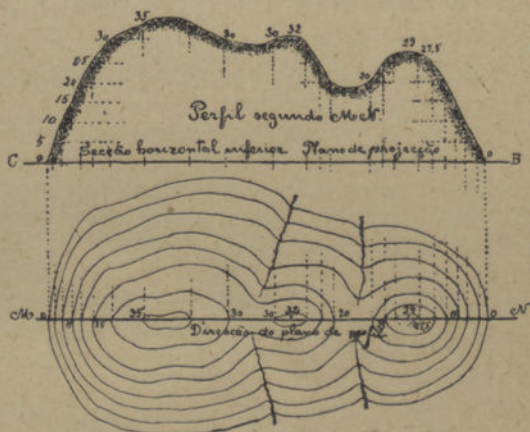 35
30
30
30
32
25
20
15
10
5
0
20
29
27,5
0
Perfil segundo M e N
C
Secção horizontal inferior Plano de projecção
B
M
0
15
35
30
30
32
20
29
0
N
Direcção do plano de